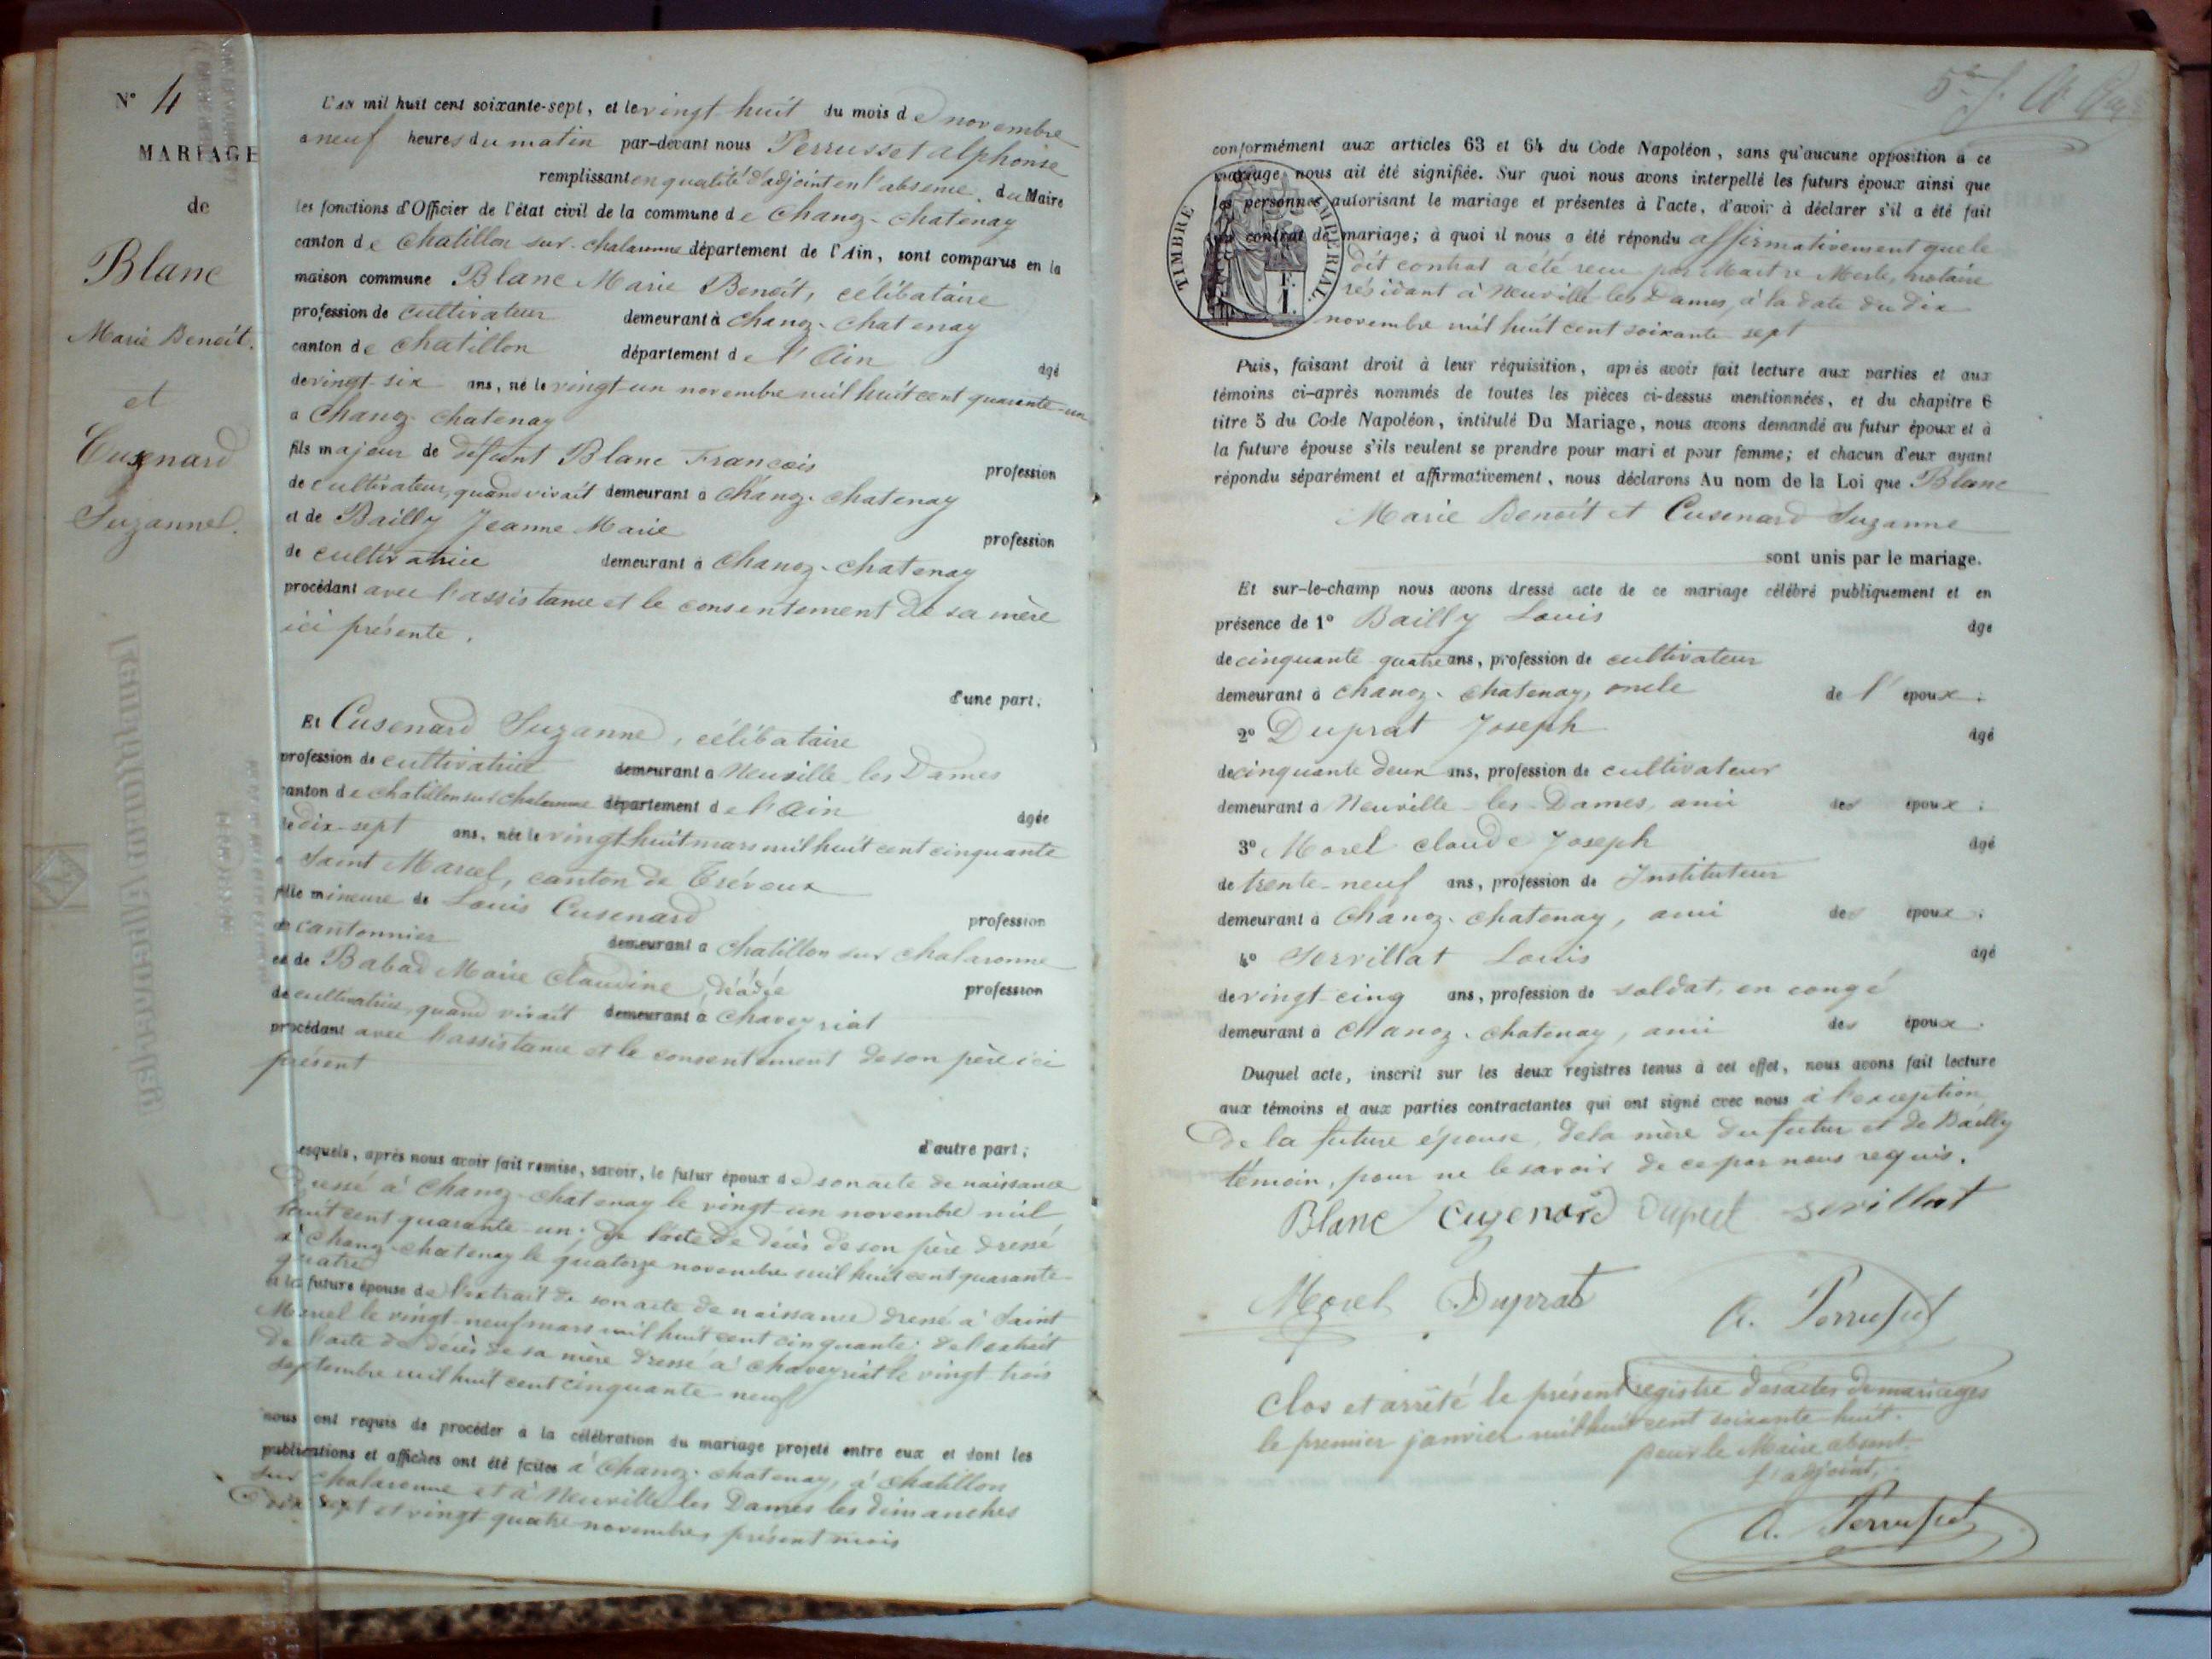 N° 4
MARIAGE
de
Blanc
Marie Benoit.
et
Cusenard
Suzanne.
L'AN mil huit cent soixante-sept, et le vingt-huit du mois de novembre
a neuf heures du matin par-devant nous Perrusset alphonse
remplissant en qualité d'adjoint en l'absence du Maire
les fonctions d'Officier de l'état civil de la commune de Chanoz-chatenay
canton de Chatillon sur-chalaronne département de l'Ain, sont comparus en la
maison commune Blanc Marie Benoit, célibataire
profession de cultivateur demeurant à chanoz-chatenay
canton de chatillon département de l'ain âgé
de vingt-six ans, né le vingt-un novembre mil huit cent quarante-un
a Chanoz-chatenay
fils majeur de défunt Blanc François profession
de cultivateur, quand vivait demeurant à Chanoz-chatenay
et de Bailly Jeanne Marie profession
de cultivatrice demeurant à Chanoz-chatenay
procédant avec l'assistance et le consentement de sa mère
ici présente.
d'une part;
Et Cusenard Suzanne, célibataire
profession de cultivatrice demeurant à Neuville-les Dames
canton de chatillon sur chalaronne département de l'ain âgée
de dix-sept ans, née le vingt huit mars mil huit cent cinquante
a Saint Marcel, canton de Trévoux
fille mineure de Louis Cusenard profession
de cantonnier demeurant à chatillon sur chalaronne
et de Babad Marie Claudine, décédée profession
de cultivatrice, quand vivait demeurant à chaveyriat
procédant avec l'assistance et le consentement de son père ici
présent
d'autre part;
esquels, après nous avoir fait remise, savoir, le futur époux de son acte de naissance
Dressé à Chanoz-chatenay le vingt un novembre mil
huit cent quarante-un; de l'acte de décès de son père dressé
à Chanoz-chatenay le quatorze novembre mil huit cent quarante
quatre
et la future épouse de l'extrait de son acte de naissance dressé à Saint
Marcel le vingt-neuf mars mil huit cent cinquante; de l'extrait
de l'acte de décès de sa mère dressé à chaveyriat le vingt trois
septembre mil huit cent cinquante-neuf
nous ont requis de procéder à la célébration du mariage projeté entre eux et dont les
publications et affiches ont été faites à Chanoz-chatenay, à chatillon
sur chalaronne et à Neuville les Dames les dimanches
dix sept et vingt quatre novembre, présent mois
conformément aux articles 63 et 64 du Code Napoléon, sans qu'aucune opposition à ce
mariage nous ait été signifiée. Sur quoi nous avons interpellé les futurs époux ainsi que
les personnes autorisant le mariage et présentes à l'acte, d'avoir à déclarer s'il a été fait
un contrat de mariage; à quoi il nous a été répondu affirmativement que le
dit contrat a été reçu par Maitre Merle, notaire
résidant à Neuville les Dames, à la date du dix
novembre mil huit cent soixante sept
TIMBRE IMPÉRIAL
Puis, faisant droit à leur réquisition, après avoir fait lecture aux parties et aux
témoins ci-après nommés de toutes les pièces ci-dessus mentionnées, et du chapitre 6
titre 5 du Code Napoléon, intitulé Du Mariage, nous avons demandé au futur époux et à
la future épouse s'ils veulent se prendre pour mari et pour femme; et chacun d'eux ayant
répondu séparément et affirmativement, nous déclarons Au nom de la Loi que Blanc
Marie Benoit et Cusenard Suzanne
sont unis par le mariage.
Et sur-le-champ nous avons dressé acte de ce mariage célébré publiquement et en
présence de 1° Bailly Louis âge
de cinquante quatre ans, profession de cultivateur
demeurant à chanoz-chatenay, oncle de l'époux;
2° Duprat Joseph âgé
de cinquante deux ans, profession de cultivateur
demeurant à Neuville-les-Dames, ami des époux;
3° Morel claude Joseph âgé
de trente-neuf ans, profession de Instituteur
demeurant à Chanoz-chatenay, ami des époux;
4° Servillat Louis âgé
de vingt-cinq ans, profession de soldat, en congé
demeurant à Chanoz-chatenay, ami des époux.
Duquel acte, inscrit sur les deux registres tenus à cet effet, nous avons fait lecture
aux témoins et aux parties contractantes qui ont signé avec nous à l'exception
De la future épouse, de la mère du futur et de Bailly
témoin, pour ne le savoir de ce par nous requis.
Blanc Cuzenard servillat
Morel Duprat A. Perrusset
Clos et arrêté le présent registre des actes de mariages
le premier janvier mil huit cent soixante huit.
pour le Maire absent
L'adjoint,
A. Perrusset